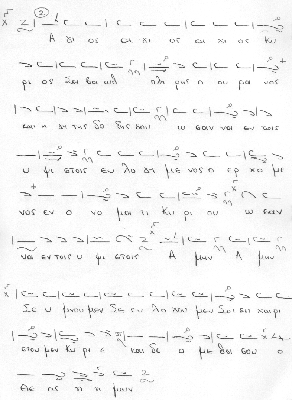 Α γι ος α γι ος α γι ος Κυ
ρι ος Σαβα ωθ πλη ρης ο ου ρα νος
και η γη της δο ξης σου ω σαν να εν τοις
υ ψι στοις ευ λο γη με νος ο ερ χο με
νος εν ο νο μα τι Κυ ρι ου ω σαν
να εν τοις υ ψι στοις Α μην Α μην
Σε υ μνου μεν σε ευ λο γου μεν σοι ευ χαρι
στου μεν Κυ ρι ε και δε ο με θα σου ο
Θε ος η μων